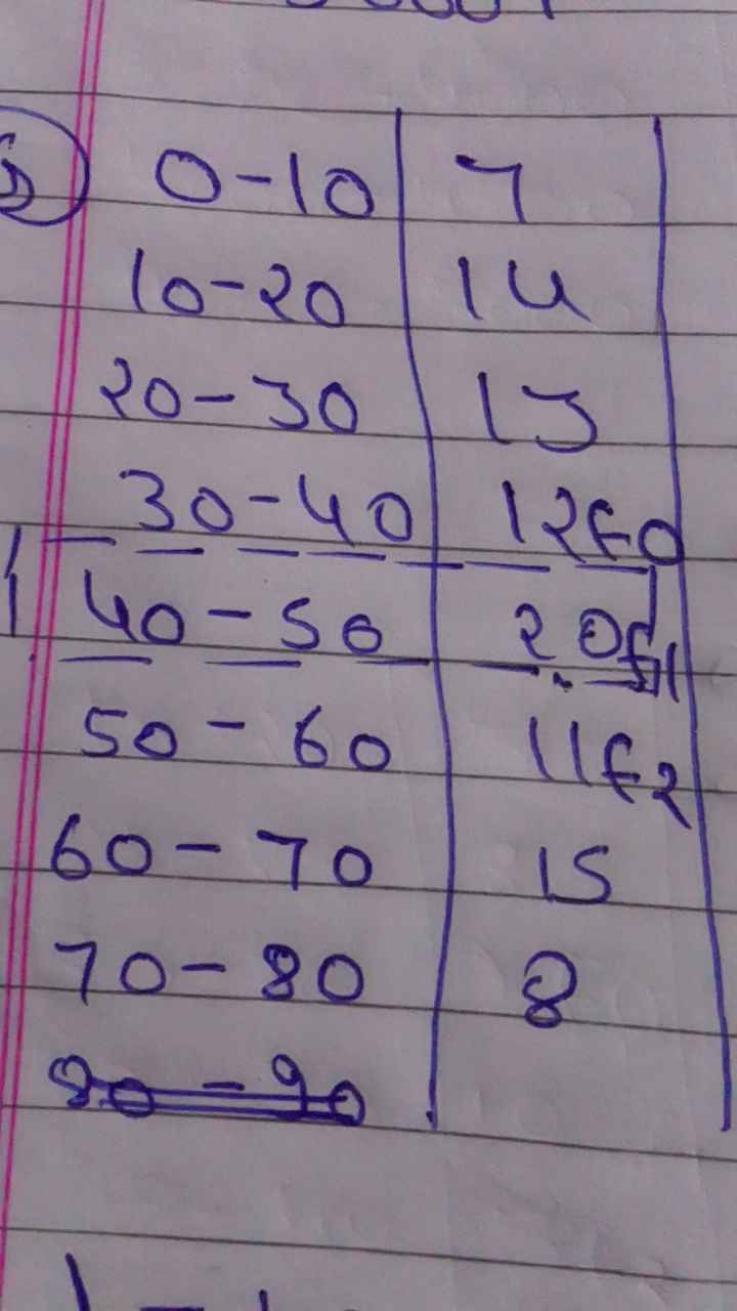 0-10 7
10-20 14
20-30 13
30-40 12 f0
40-50 20 f1
50-60 11 f2
60-70 15
70-80 8
80-90